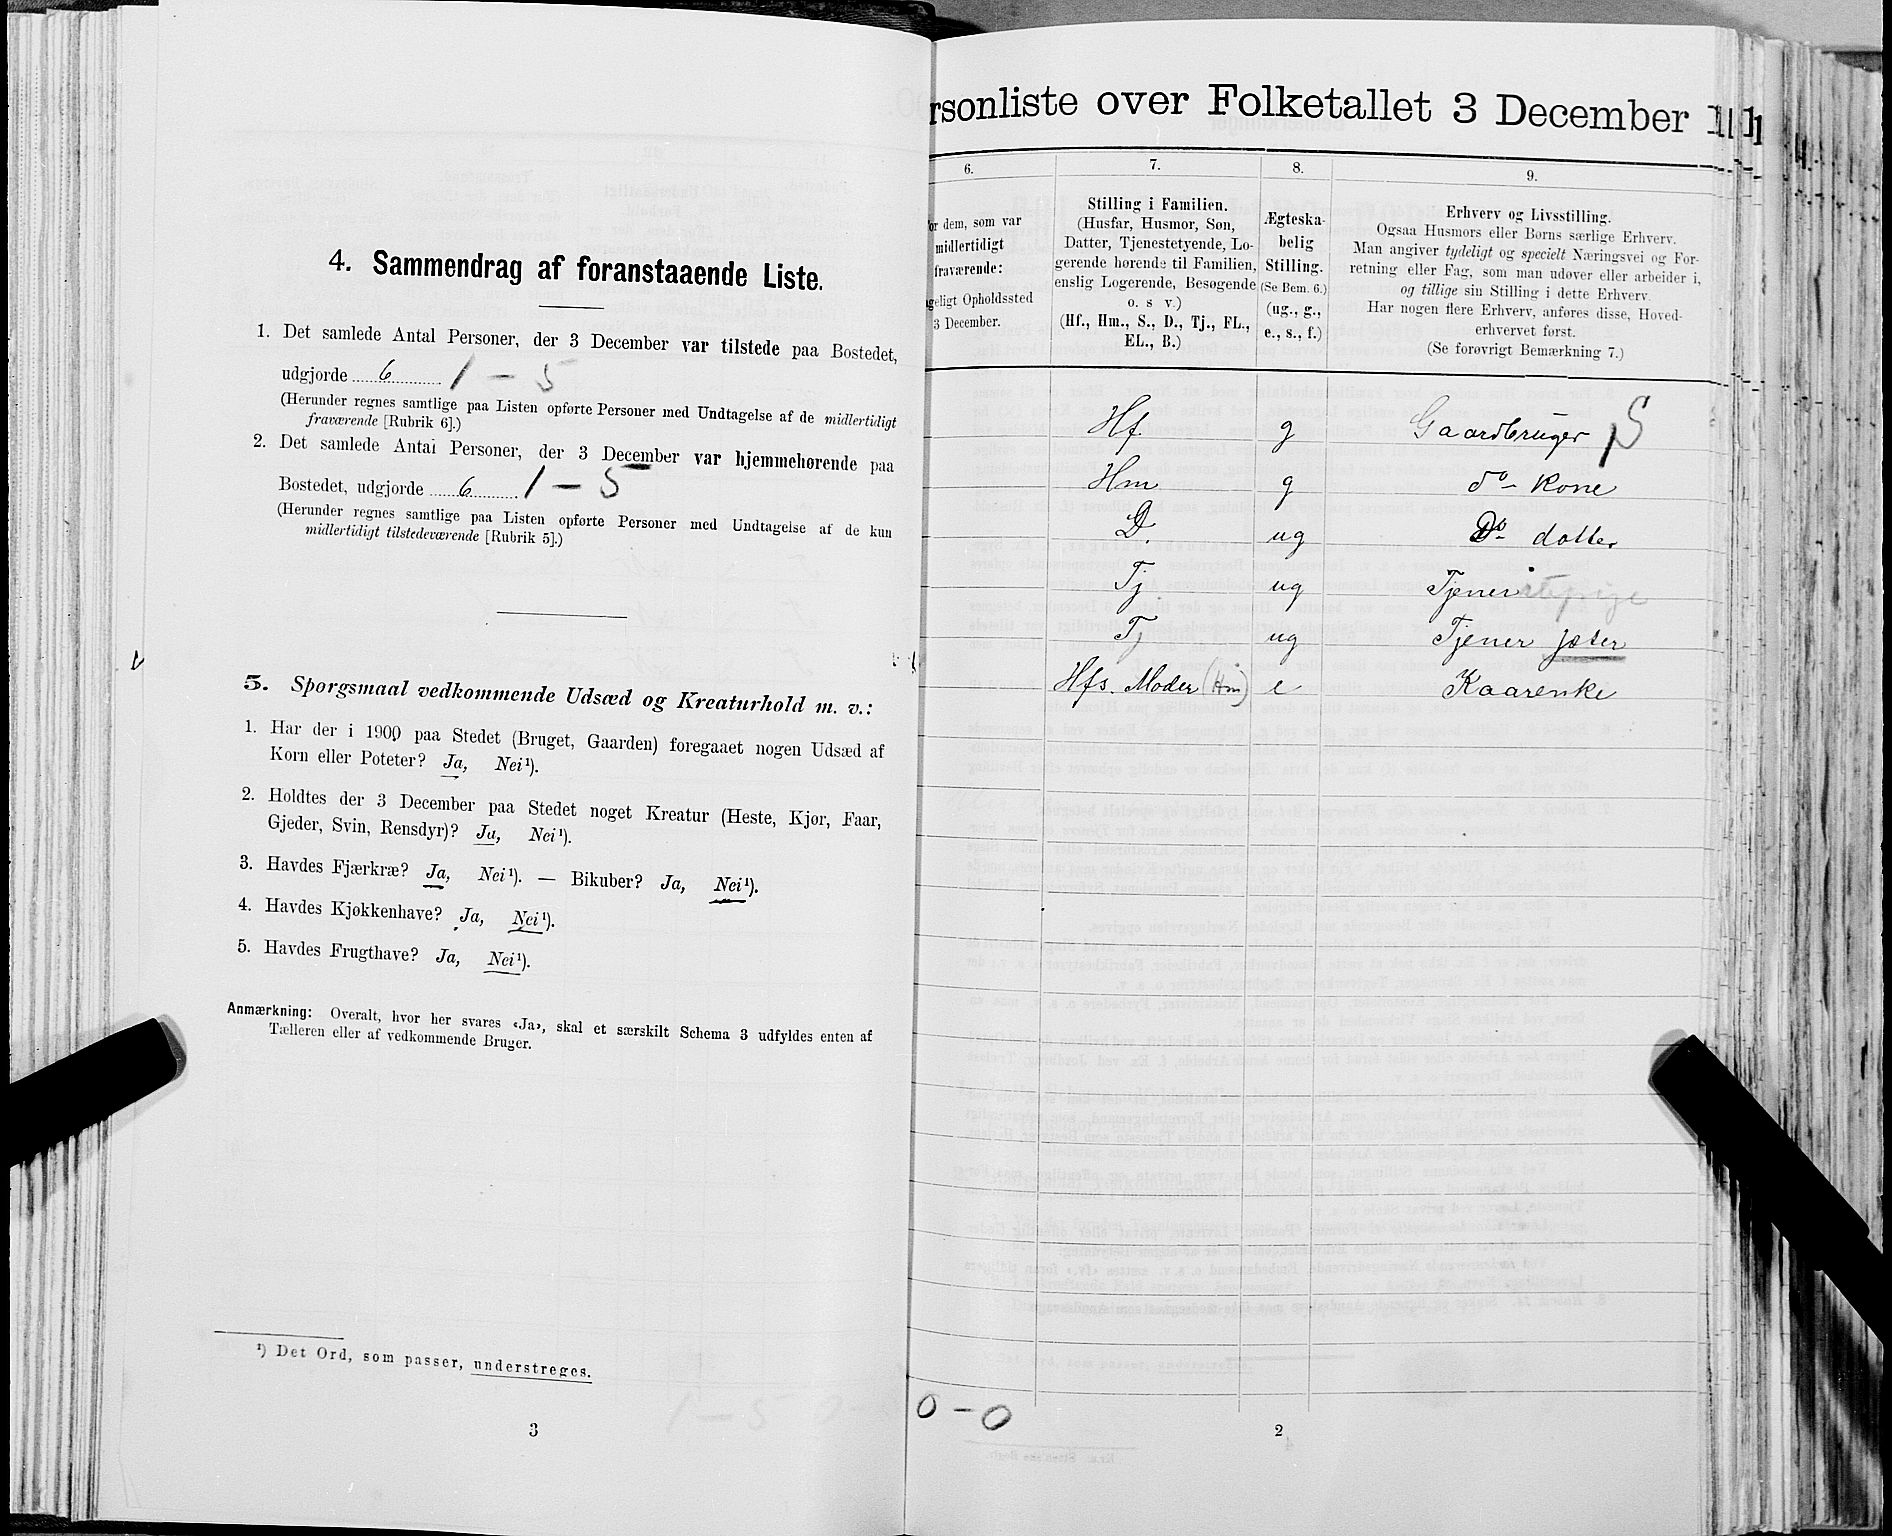 4. Sammendrag af foranstaaende Liste.
1. Det samlede Antal Personer, der 3 December var tilstede paa Bostedet,
udgjorde 6 1 – 5
(Herunder regnes samtlige paa Listen opførte Personer med Undtagelse af de midlertidigt
fraværende [Rubrik 6].)
2. Det samlede Antal Personer, der 3 December var hjemmehørende paa
Bostedet, udgjorde 6 1 – 5
(Herunder regnes samtlige paa Listen opførte Personer med Undtagelse af de kun
midlertidigt tilstedeværende [Rubrik 5].)
5. Spørgsmaal vedkommende Udsæd og Kreaturhold m. v.:
1. Har der i 1900 paa Stedet (Bruget, Gaarden) foregaaet nogen Udsæd af
Korn eller Poteter? Ja, Nei¹).
2. Holdtes der 3 December paa Stedet noget Kreatur (Heste, Kjør, Faar,
Gjeder, Svin, Rensdyr)? Ja, Nei¹).
3. Havdes Fjærkræ? Ja, Nei¹). — Bikuber? Ja, Nei¹).
4. Havdes Kjøkkenhave? Ja, Nei¹).
5. Havdes Frugthave? Ja, Nei¹).
Anmærkning: Overalt, hvor her svares «Ja», skal et særskilt Schema 3 udfyldes enten af
Tælleren eller af vedkommende Bruger.
¹) Det Ord, som passer, understreges.
3
rsonliste over Folketallet 3 December 1
6.
or dem, som var
midlertidigt
fraværende:
geligt Opholdssted
3 December.
7.
Stilling i Familien.
(Husfar, Husmor, Søn,
Datter, Tjenestetyende, Lo-
gerende hørende til Familien,
enslig Logerende, Besøgende
o. s v.)
(Hf., Hm., S., D., Tj., FL.,
EL., B.)
8.
Ægteska-
belig
Stilling.
(Se Bem. 6.)
(ug., g.,
e., s., f.)
9.
Erhverv og Livsstilling.
Ogsaa Husmors eller Børns særlige Erhverv.
Man angiver tydeligt og specielt Næringsvei og For-
retning eller Fag, som man udøver eller arbeider i,
og tillige sin Stilling i dette Erhverv.
Har nogen flere Erhverv, anføres disse, Hoved-
erhvervet først.
(Se forøvrigt Bemærkning 7.)
Hf. g Gaardbruger S
Hm g do Kone
D. ug Do datter
Tj ug
Tj ug Tjener jæter
Hfs. Moder (Hm) e Kaarenke
0 – 0
2